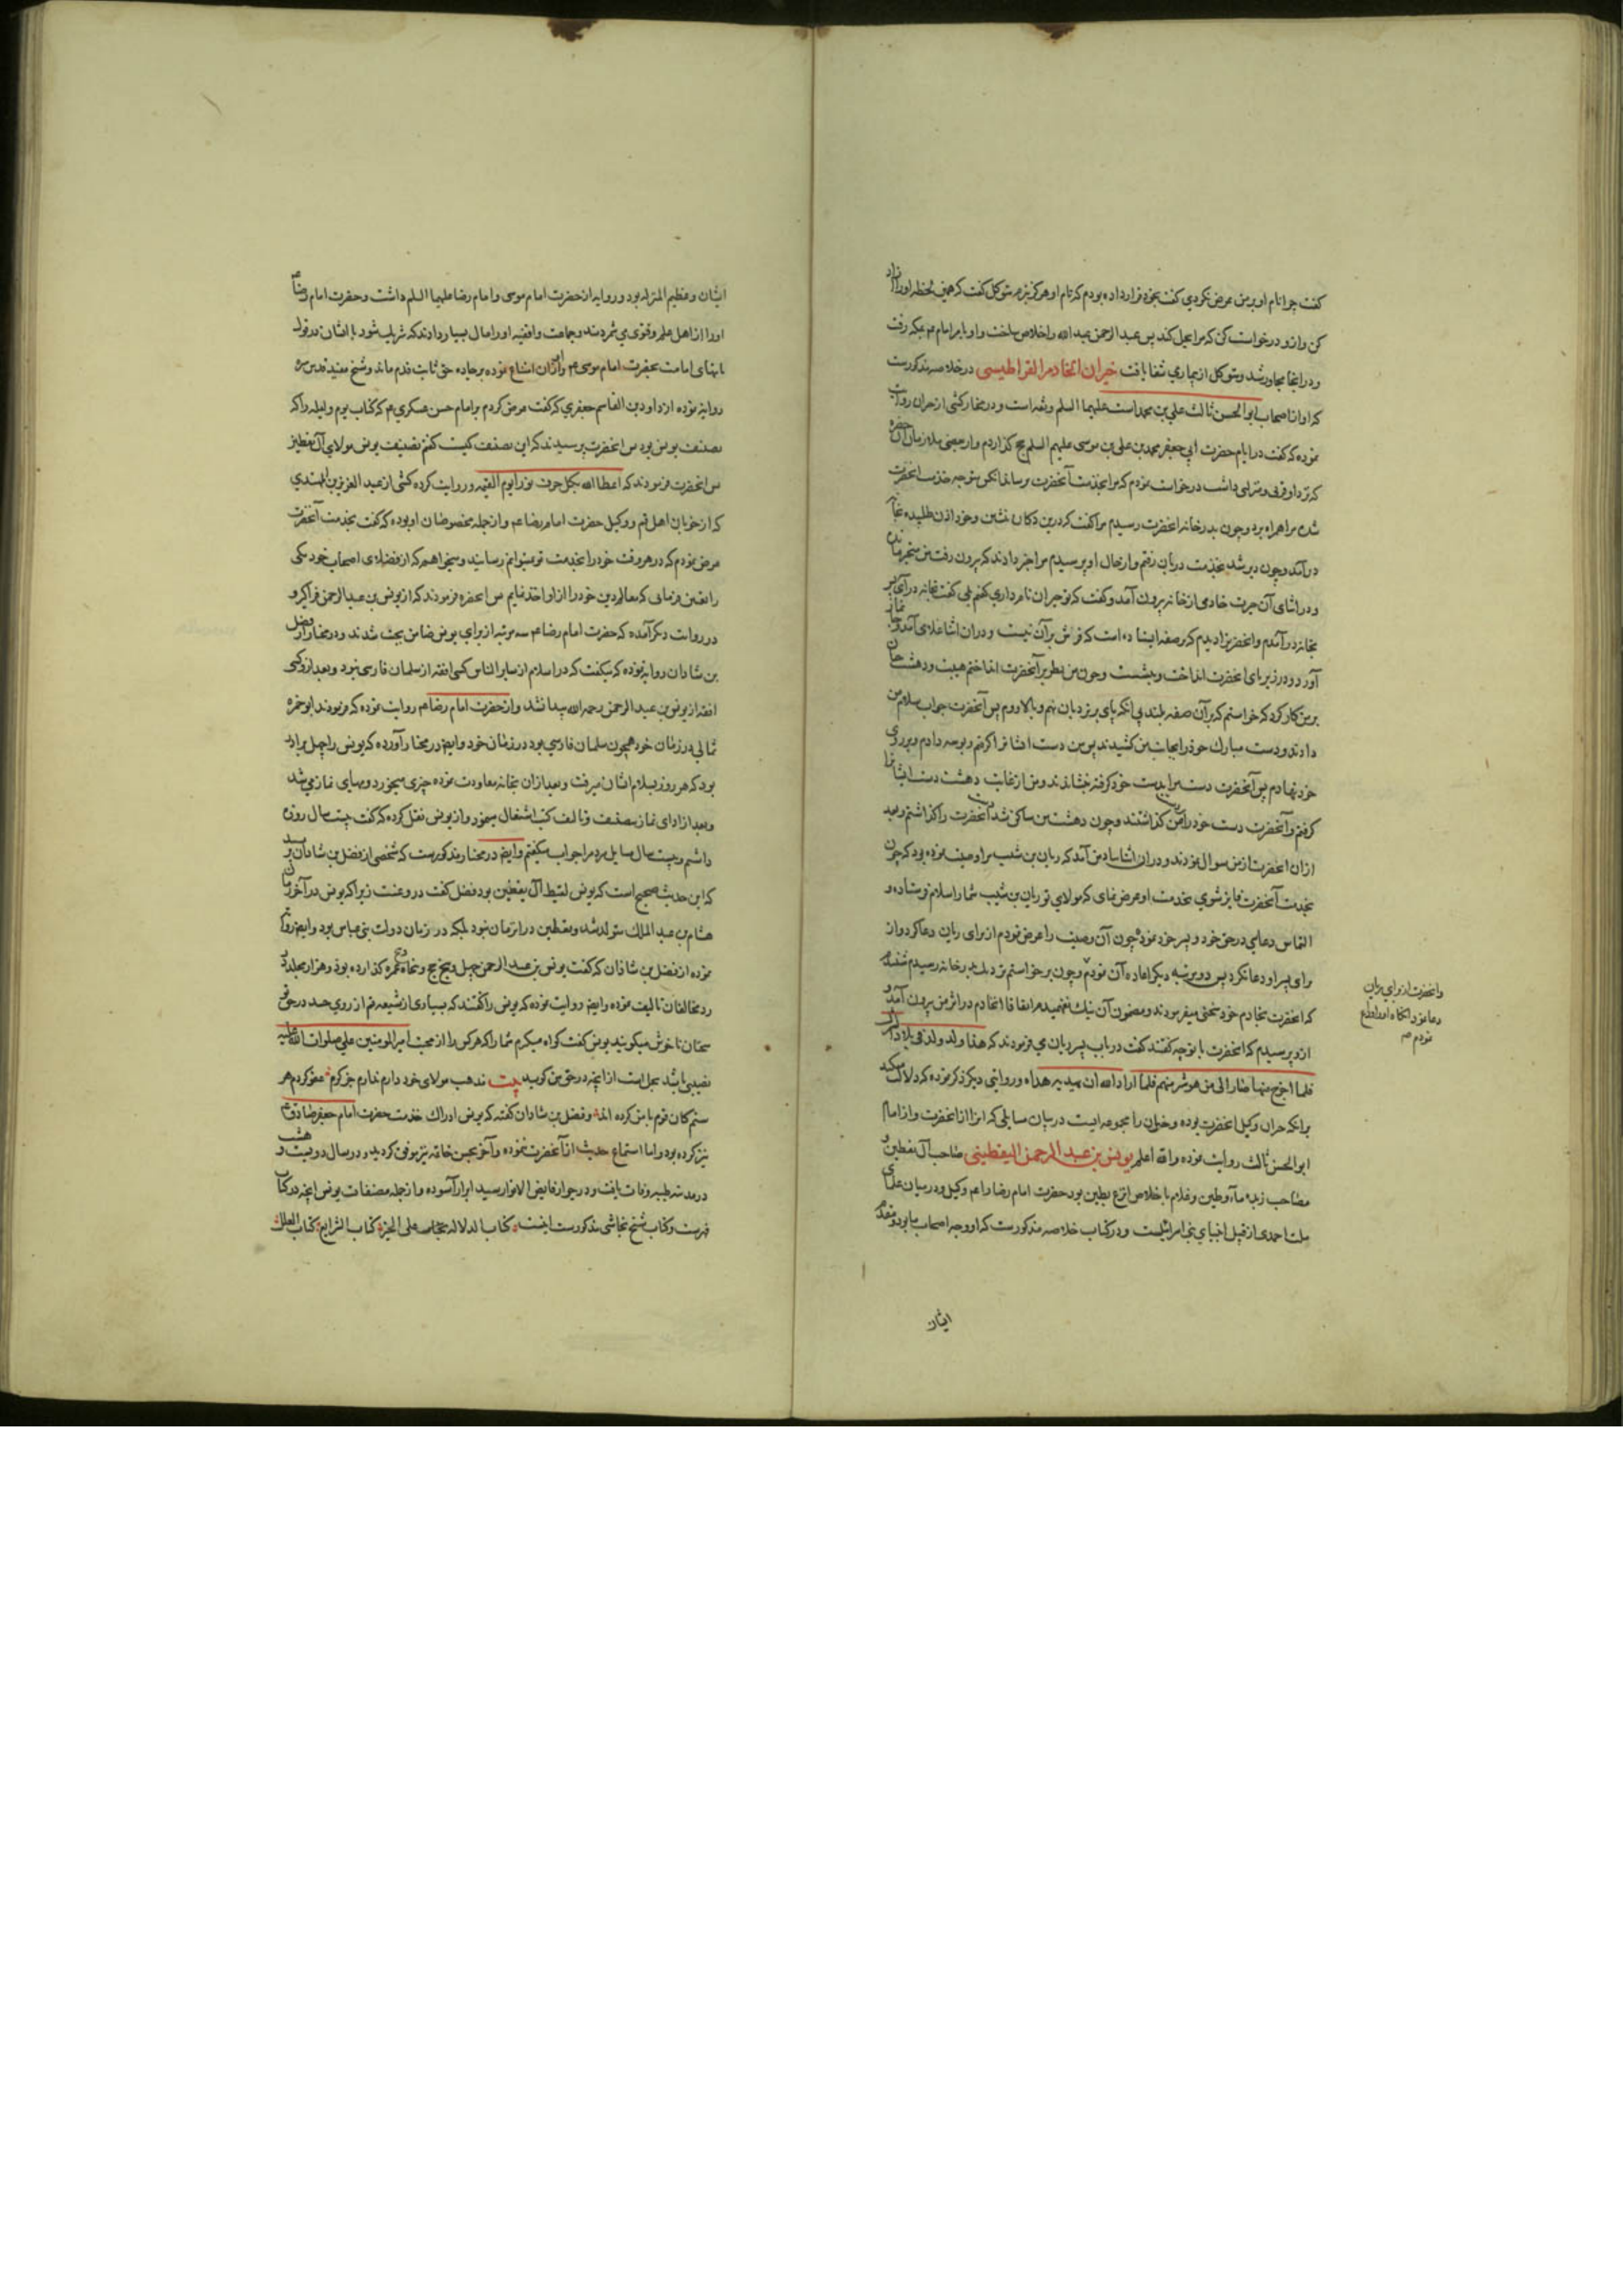 کفت چرا نام او بر من عرض نکردی کفت بخود قرار داده بودم که نام او هرکز نبرم متوکل کفت که همین لحظه او را آزاد
کن و ازو درخواست کن که مرا بحل کند پس عبد الرحمن عبد الله را خلاص ساخت و او بامر امام عم بمکه رفت
و در انجا مجاور شد و متوکل از بیماری شفا یافت خیران الخادم القراطیسی در خلاصه مذکورست
که او از اصحاب ابو الحسن ثالث علی بن محمد است علیهما السلم و ثقه است و در مختار کشی از خیران روایت
نموده که کفت در ایام حضرت ابی جعفر محمد بن علی بن موسی علیهم السلم حج کذاردم و از بعضی ملازمان آن حضرة
که نزد او قربی و منزلی داشت درخواست نمودم که مرا بخدمت آنحضرت رساند انکس متوجه خدمت انحضرت
شده مرا همراه برد و چون بدر خانه انحضرت رسیدیم مرا کفت که درین دکان بنشین و خود اذن طلبیده بخانه
درآمد و چون دیر شد بخدمت دربان رفتم و از حال او پرسیدم مرا خبر دادند که بیرون رفت من متحیر ماندم
و در اثنای آن حیرت خادمی از خانه بیرون آمد و کفت که تو خیران نام داری کفتم بلی کفت بخانه درآی پس
بخانه درآمدم و انحضرت را دیدم که بر صفه ایستاده است که فرش بر آن نیست و در ان اثنا غلامی آمد و جا نماز
آورد و در زیر پای انحضرت انداخت و بنشست و چون من نظر بر آنحضرت انداختم هیبت و دهشت چنان
بر من کار کرد که خواستم که بر آن صفه بلند بی انکه پای بر نردبان نهم و بالا روم پس آنحضرت جواب سلام من
دادند و دست مبارک خود را بجانب من کشیدند پس من دست ایشان را کرفتم و بوسه دادم و بر روی
خود نهادم پس آنحضرت دست مرا بدست خود کرفته بنشاندند و من از غایت دهشت دست ایشان را
کرفتم و آنحضرت دست خود را در دست من کذاشتند و چون دهشت من ساکن شد دست آنحضرت را کذاشتم و بعد
ازان انحضرت از من سوال نمودند و در ان اثنا بیاد من آمد که ریان بن شبیب مرا وصیت نموده بود که چون
بخدمت آنحضرت فایز شوی بخدمت او عرض نمای که مولای تو ریان بن شبیب شما را سلام فرستاده و
التماس دعایی در حق خود و پسر خود نموده چون آن وصیت را عرض نمودم از برای ریان دعا کرد و از
برای پسر او دعا نکرد پس دو مرتبه دیکر اعاده آن نمودم و چون برخواستم نزدیک بدر خانه رسیدم شنیدم
که انحضرت بخادم خود سخنی میفرمودند و مضمون آن نیک نفهمیدم اتفاقا انخادم در اثر من بیرون آمد و
ازو پرسیدم که انحضرت با تو چه کفتند کفت در باب پسر ریان می فرمودند که هذا ولد ولد فی بلاد الشرک
فلما اخرج منها صار الی من هو شر منهم فلما اراد الله ان یهدیه هداه و روایتی دیکر ذکر نموده که دلالت میکند
برانکه خیران وکیل انحضرت بوده و خیران را مجموعه ایست در بیان مسایلی که انرا از انحضرت و از امام
ابو الحسن ثالث روایت نموده والله اعلم یونس بن عبد الرحمن الیقطینی صاحب آل یقطین و
مصاحب زبده ماء و طین و غلام باخلاص انزع بطین بود حضرت امام رضا را عم وکیل و در میان علمای
ملت احمدی از قبیل انبیای بنی اسرائیلست و در کتاب خلاصه مذکورست که او وجه اصحاب ما بود و متقدم
ایشان
وانحضرت از برای ریان
دعا نمود انکاه او را وداع
نمودم صح
ایشان و عظیم المنزله بود و روایه از حضرت امام موسی و امام رضا علیهما السلم داشت و حضرت امام رضا عم
او را از اهل علم و فتوی می شمردند و جماعت واقفیه او را مال بسیار دادند که شریک شود با ایشان در قول
بانهای امامت بحضرت امام موسی عم و او ازان امتناع نموده بر جاده حق ثابت قدم ماند و شیخ مفید قدس سره
روایه نموده از داود بن القاسم جعفری که کفت عرض کردم بر امام حسن عسکری عم کتاب یوم و لیله را که
تصنیف یونس بود پس انحضرت پرسیدند که این تصنیف کیست کفتم تصنیف یونس مولای آل یقطین
پس انحضرت فرمودند که اعطاه الله بکل حرف نورا یوم القیمه و روایت کرده کشی از عبد العزیز بن المهتدی
که از خوبان اهل قم و وکیل حضرت امام رضا عم و از جمله مخصوصان او بوده که کفت بخدمت آنحضرت
عرض نمودم که در هر وقت خود را بخدمت تو نمیتوانم رسانید و میخواهم که از فضلای اصحاب خود یکی
را تعیین فرمائی که معالم دین خود را ازو اخذ نمایم پس انحضرة فرمودند که از یونس بن عبد الرحمن فراکیر و
در روایت دیکر آمده که حضرت امام رضا عم سه مرتبه از برای یونس ضامن بهشت شدند و در مختار از فضل
بن شاذان روایه نموده که میکفت که در اسلام از سایر الناس کسی افقه از سلمان فارسی نبود و بعد ازو کسی
افقه از یونس بن عبد الرحمن رحمه الله پیدا نشد و از حضرت امام رضا عم روایت نموده که فرمودند ابو حمزه
ثمالی در زمان خود همچون سلمان فارسی بود در زمان خود و ایضا در مختار آورده که یونس را چهل برادر
بود که هر روز بسلام ایشان میرفت و بعد ازان بخانه معاودت نموده چیزی میخورد و مهیای نماز می شد
و بعد از ادای نماز بتصنیف و تالیف کتب اشتغال مینمود و از یونس نقل کرده که کفت بیست سال روزه
داشتم و بیست سال سایل مردم را جواب میکفتم و ایضا در مختار مذکورست که شخصی از فضل بن شاذان پرسید
که این حدیث صحیح است که یونس لقیط آل یقطین بود فضل کفت دروغست زیرا که یونس در آخر زمان
هشام بن عبد الملک متولد شد و یقطین در ان زمان نبود بلکه در زمان دولت بنی عباس بود و ایضا روایت
نموده از فضل بن شاذان که کفت یونس بن عبد الرحمن چهل و پنج حج و پنجاه عمره کذارده بود و هزار مجلد در
رد مخالفان تالیف نموده و ایضا روایت نموده که یونس را کفتند که بسیاری از شیعه قم از روی حسد در حق تو
سخنان ناخوش میکویند یونس کفت کواه میکیرم شما را که هرکس را از محبت امیر المومنین علی صلوات الله علیه
نصیبی باشد بحل است از انچه در حق من کوید بیت مذهب مولای خود دارم ندارم جز کرم عفو کردم هر
ستم کان قوم با من کرده اند و فضل بن شاذان کفته که یونس ادراک خدمت حضرت امام جعفر صادق عم
نیز کرده بود و اما استماع حدیث از آنحضرت ننموده و آخر بحسن خاتمه نیز موفق کردید و در سال دویست و هشت
در مدینه طیبه وفات یافت و در جوار فایض الانوار سید ابرار آسوده و از جمله مصنفات یونس انچه در کتاب
فهرست و کتاب شیخ نجاشی مذکورست اینست کتاب الدلاله علی الخیر کتاب الشرایع کتاب العلل